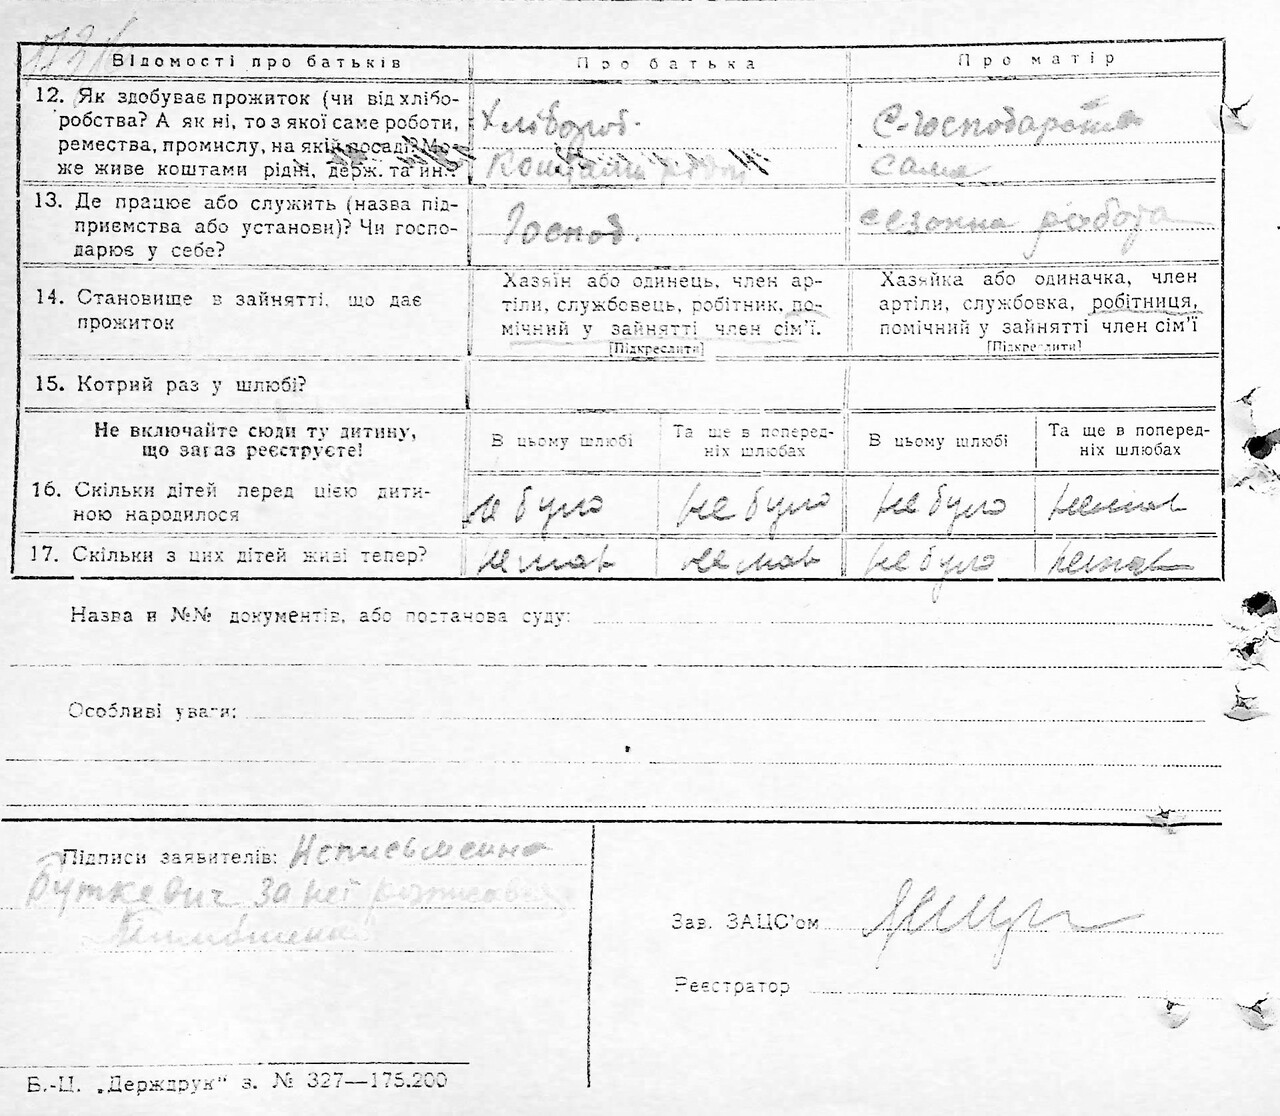 Відомості про батьків
Про батька
Про матір
12. Як здобуває прожиток (чи від хлібо-
робства? А як ні, то з якої саме роботи,
ремества, промислу, на якій посаді? Мо-
же живе коштами рідні, держ. та ин.?
Хлібороб.
Коштами рідні
С-господарства
сама
13. Де працює або служить (назва під-
приємства або установи)? Чи госпо-
дарює у себе?
Господ.
сезонна робота
14. Становище в зайнятті, що дає
прожиток
Хазяїн або одинець, член ар-
тіли, службовець, робітник, по-
мічний у зайнятті член сім’ї.
[Підкреслити]
Хазяйка або одиначка, член
артіли, службовка, робітниця,
помічний у зайнятті член сім’ї
[Підкреслити]
15. Котрий раз у шлюбі?
Не включайте сюди ту дитину,
що зараз реєструєте!
В цьому шлюбі
Та ще в поперед-
ніх шлюбах
В цьому шлюбі
Та ще в поперед-
ніх шлюбах
16. Скільки дітей перед цією дити-
ною народилося
не було
не було
не було
немав
17. Скільки з цих дітей живі тепер?
немав
не мав
не було
немав
Назва и №№ документів, або постанова суду:
Особливі уваги:
Підписи заявителів: Неписьменна
Буткевич за неї розписавсь
Зав. ЗАЦС’ом
Реєстратор
Б.-Ц. „Держдрук“ з. № 327—175.200